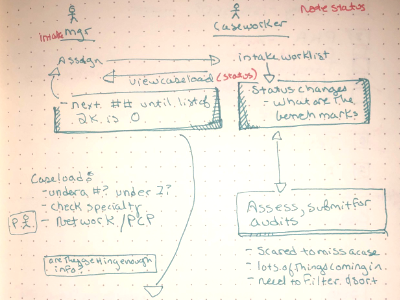 node status
intake mgr
Caseworker
Assign
intake worklist
view caseload (status)
- next ## until list of
2K is 0
Status changes
- what are the
benchmarks
Caseloads
- under a #? under I?
- check specialty
- Network / PCP
P.
Assess, submit for
audits
are they getting enough
info?
- Scared to miss a case
- lots of things coming in
- need to filter & sort